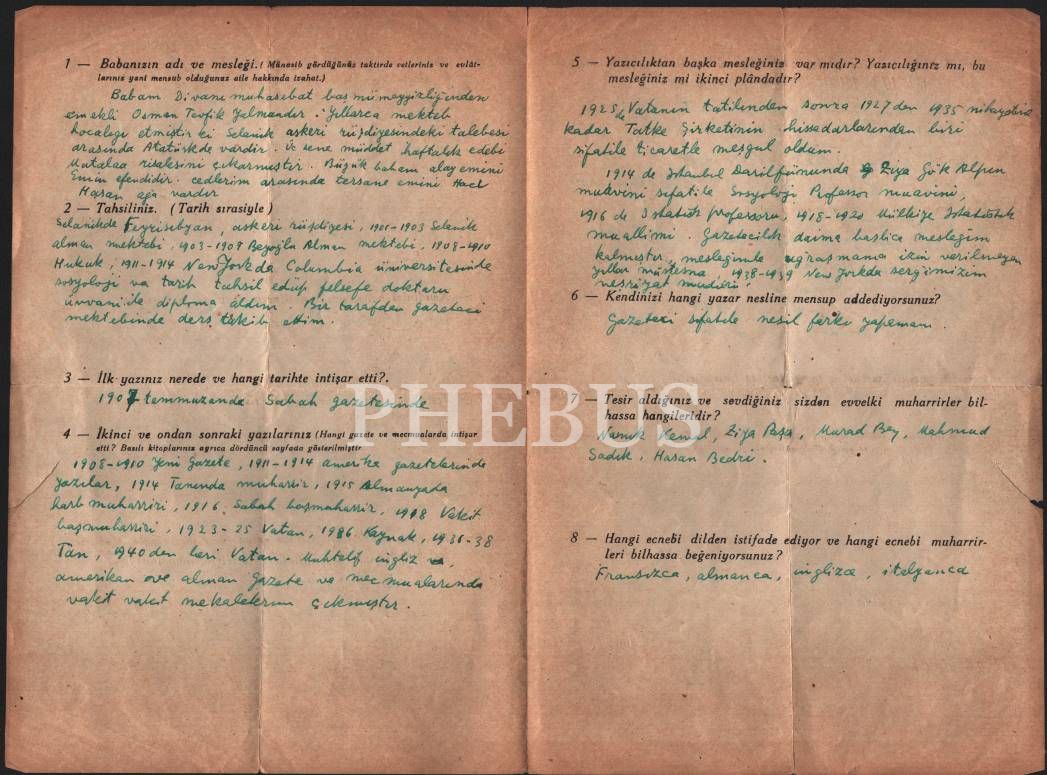 1 — Babanızın adı ve mesleği. ( Münasib gördüğünüz taktirde velleriniz ve evlât-
larınız yani mensub olduğunuz aile hakkında izahat.)
Babam Divanı muhasebat baş mümeyyizliğinden
emekli Osman Tevfik Yalmandır. Yıllarca mekteb
hocalığı etmiştir ki Selanik askeri rüşdiyesindeki talebesi
arasında Atatürkde vardır. Üç sene müddet haftalık edebi
Mutalaa risalesini çıkarmıştır. Büyük babam alay emini
Emin efendidir. cedlerim arasında tersane emini Hacı
Hasan ağa vardır
2 — Tahsiliniz. (Tarih sırasiyle)
Selanikde Feyzisıbyan, askeri rüşdiyesi, 1901-1903 Selanik
alman mektebi, 1903-1908 Beyoğlu Alman mektebi, 1908-1910
Hukuk, 1911-1914 New Yorkda Columbia üniversitesinde
sosyoloji va tarih tahsil edüp felsefe doktoru
ünvanı ile diploma aldım. Bir tarafdan gazeteci
mektebinde ders takib ettim.
3 — İlk yazınız nerede ve hangi tarihte intişar etti?.
1907 temmuzunda Sabah gazetesinde
4 — İkinci ve ondan sonraki yazılarınız (Hangi gazete ve mecmualarda intişar
etti? Basılı kitaplarınız ayrıca dördüncü sayfada gösterilmiştir
1908-1910 Yeni Gazete, 1911-1914 amerika gazetelerinde
yazılar, 1914 Taninda muharrir, 1915 Almanyada
harb muharriri, 1916 Sabah başmuharrir, 1918 Vakit
başmuharriri, 1923-25 Vatan, 1936 Kaynak, 1936-38
Tan, 1940 den beri Vatan. Muhtelif ingliz ve
amerikan ve alman gazete va mecmualarında
vakit vakit makalelerim çıkmıştır.
5 — Yazıcılıktan başka mesleğiniz var mıdır? Yazıcılığınız mı, bu
mesleğiniz mi ikinci plândadır?
1925 de Vatanın tatilinden sonra 1927 den 1935 nihayetine
kadar Tatko Şirketinin hissadarlarından biri
sıfatile ticaretle meşgul oldum.
1914 de Istanbul Darülfünunda Ziya Gök Alpın
muavini sıfatile Sosyoloji Profesör muavini,
1916 de Istatistik profesoru, 1918-1920 Mülkiye Istatistik
muallimi. Gazetecilik daima başlıca mesleğim
kalmıştır, mesleğimle uğraşmama izin verilmeyen
yıllar müstesna, 1938-1939 New Yorkda sergimizin
neşriyat müdürü
6 — Kendinizi hangi yazar nesline mensup addediyorsunuz?
Gazeteci sıfatile nesil farkı yapamam.
7 — Tesir aldığınız ve sevdiğiniz sizden evvelki muharrirler bil-
hassa hangileridir?
Namık Kemal, Ziya Paşa, Murad Bey, Mahmud
Sadık, Hasan Bedri.
8 — Hangi ecnebi dilden istifade ediyor ve hangi ecnebi muharrir-
leri bilhassa beğeniyorsunuz?
Fransızca, almanca, inglizce, italyanca
PHEBUS